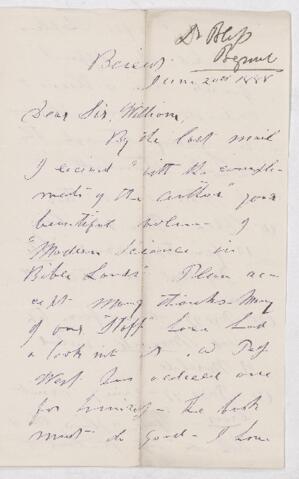 Dr Bliss
Beyrut
Beirut
June 20th 1888
Dear Sir William,
By the last mail
I received "with the compli-
ments of the author" your
beautiful volume of
"Modern Science in
Bible Lands" Please acc
ept many thanks. Many
of our "Staff" have had
a look into it. & Prof
West has ordered one
for himself - the book
must do good - I have